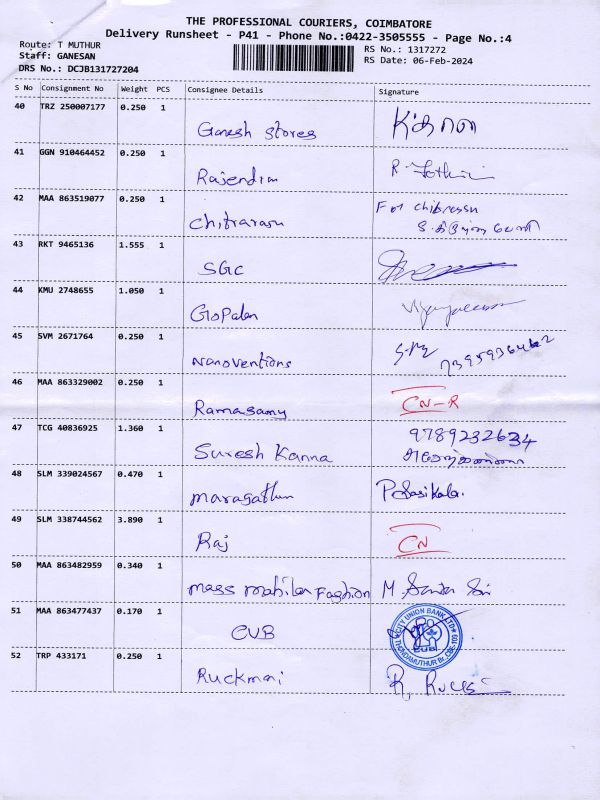 THE PROFESSIONAL COURIERS, COIMBATORE
Delivery Runsheet - P41 - Phone No.:0422-3505555 - Page No.:4
Route: T MUTHUR
Staff: GANESAN
DRS No.: DCJB131727204
RS No.: 1317272
RS Date: 06-Feb-2024
S No Consignment No Weight PCS Consignee Details Signature
40 TRZ 250007177 0.250 1 Ganesh Stores
41 GGN 910464452 0.250 1 Rajendran R.
42 MAA 863519077 0.250 1 Chitrarasu For Chibrassu
43 RKT 9465136 1.555 1 SGC
44 KMU 2748655 1.050 1 Gopalan
45 SVM 2671764 0.250 1 Nanoventions 7395936462
46 MAA 863329002 0.250 1 Ramasamy CN-R
47 TCG 40836925 1.360 1 Suresh Kanna 9789232634
48 SLM 339024567 0.470 1 Maragathm P. Sasikala.
49 SLM 338744562 3.890 1 Raj CN
50 MAA 863482959 0.340 1 Mass Mahila Fashion M.
51 MAA 863477437 0.170 1 CUB CITY UNION BANK LTD CUB THONDAMUTHUR Br. CBE-109
52 TRP 433171 0.250 1 Ruckmai R.